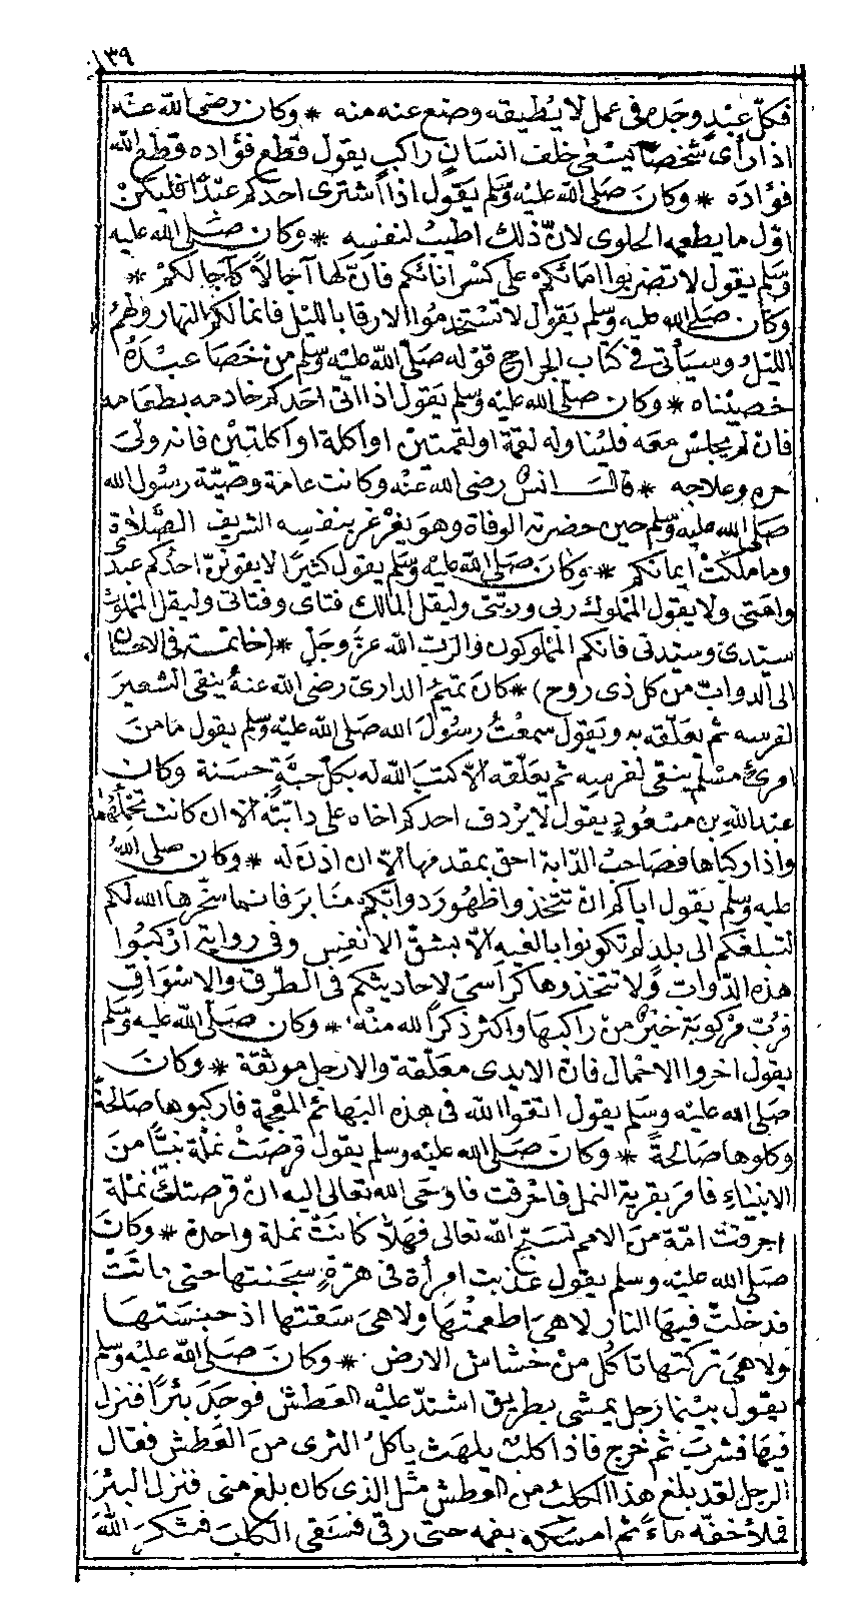 ١٣٩
فكلّ عبدٍ وجده في عمل لا يطيقه وضع عنه منه * وكان رضى الله عنه
اذا رأى شخصًا يسعى خلف انسانٍ راكبٍ يقول قطع فؤاده قطع الله
فؤاده * وكان صلى الله عليه وسلم يقول اذا اشترى احدكم عبدًا فليكن
اوّل ما يطعمه الحلوى لانّ ذلك اطيب لنفسه * وكان صلى الله عليه
وسلم يقول لا تضربوا امائكم على كسر انائكم فانّ لها آجالاً كآجالكم *
وكان صلى الله عليه وسلم يقول لا تستخدموا الارقا بالليل فانما لكم النهار ولهم
الليل وسيأتى فى كتاب الجراح قوله صلى الله عليه وسلم من خصا عبده
خصيناه * وكان صلى الله عليه وسلم يقول اذا اتى احدكم خادمه بطعامه
فان لم يجلس معه فليناوله لقمة او لقمتين او اكلة او اكلتين فانه ولى
حره وعلاجه * قال انس رضى الله عنه وكانت عامة وصيّة رسول الله
صلى الله عليه وسلم حين حضرته الوفاة وهو يغرغر بنفسه الشريف الصلاة
وما ملكت ايمانكم * وكان صلى الله عليه وسلم يقول كثيرًا لا يقولنّ احدكم عبد
وامتى ولا يقول المملوك ربى وربتى وليقل المالك فتاى وفتاتى وليقل المملوك
سيّدى وسيّدتى فانكم المملوكون والربّ الله عزّ وجلّ * (خاتمة فى الاحسان
الى الدوابّ من كل ذى روح) * كان تميم الدارى رضى الله عنه ينقى الشعير
لفرسه ثم يعلّقه به ويقول سمعت رسول الله صلى الله عليه وسلم يقول ما من
امرئ مسلم ينقى لفرسه ثم يعلّقه الّا كتب الله له بكلّ حبّةٍ حسنة وكان
عبد الله بن مسعودٍ يقول لا يردف احدكم اخاه على دابّته الّا ان كانت تحملهما
واذا ركباها فصاحب الدّابة احق بمقدمها الّا ان اذن له * وكان صلى الله
عليه وسلم يقول اياكم ان تتخذوا ظهور دوابّكم منابر فانما سخّرها الله لكم
لتبلغكم الى بلدٍ لم تكونوا بالغيه الّا بشقّ الانفس وفى رواية اركبوا
هذه الدّواب ولا تتخذوها كراسى لاحاديثكم فى الطرق والاسواق
فربّ مركوبة خير من راكبها واكثر ذكرًا لله منه * وكان صلى الله عليه وسلم
يقول اخروا الاحمال فانّ الايدى معلّقة والارجل موثقة * وكان
صلى الله عليه وسلم يقول اتقوا الله فى هذه البهائم المعجمة فاركبوها صالحةً
وكلوها صالحةً * وكان صلى الله عليه وسلم يقول قرصت نملة نبيًّا من
الانبياء فامر بقرية النمل فاحرقت فاوحى الله تعالى اليه ان قرصتك نملة
احرقت امّة من الامم تسبّح الله تعالى فهلّا كانت نملة واحدة * وكان
صلى الله عليه وسلم يقول عذبت امرأة فى هرّةٍ سجنتها حتى ماتت
فدخلت فيها النار لا هى اطعمتها ولا هى سقتها اذ حبستها
ولا هى تركتها تاكل من خشاش الارض * وكان صلى الله عليه وسلم
يقول بينما رجل يمشى بطريق اشتدّ عليه العطش فوجد بئرًا فنزل
فيها فشرب ثم خرج فاذا كلب يلهث ياكل الثرى من العطش فقال
الرجل لقد بلغ هذا الكلب من العطش مثل الذى كان بلغ منى فنزل البئر
فملأ خفّه ماءً ثم امسكه بفمه حتى رقى فسقى الكلب فشكر الله